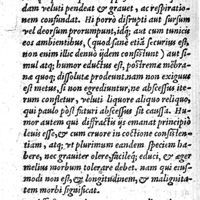 dam veluti pendeat & grauet, ac respiratio-
nem confundat. Hi porrò disrupti aut sursum
vel deorsum prorumpunt, idq; aut cum tunicis
eos ambientibus, (quod sanè etiã securius est,
non enim illic denuò ijdem consistunt) aut si-
mul atq; humor eductus est, postrema mẽbra-
na quoq; dissoluta prodeunt. nam non exiguus
est metus, si non egrediuntur, ne abscessus ite-
rum conflctur, veluti liquore aliquo reliquo,
qui paulo post futuri abscessus sit causa. Hu-
mor autem qui diffractis ijs emanat principio
leuis esse, & cum cruore in coctione consisten-
tiam, atq; vt plurimum eandem speciem ha-
bere, nec grauiter olere, facileq; educi, & æger
melius morbum tolerare debet. nam qui eius-
modi non est, & longitudinem, & malignita-
tem morbi significat.